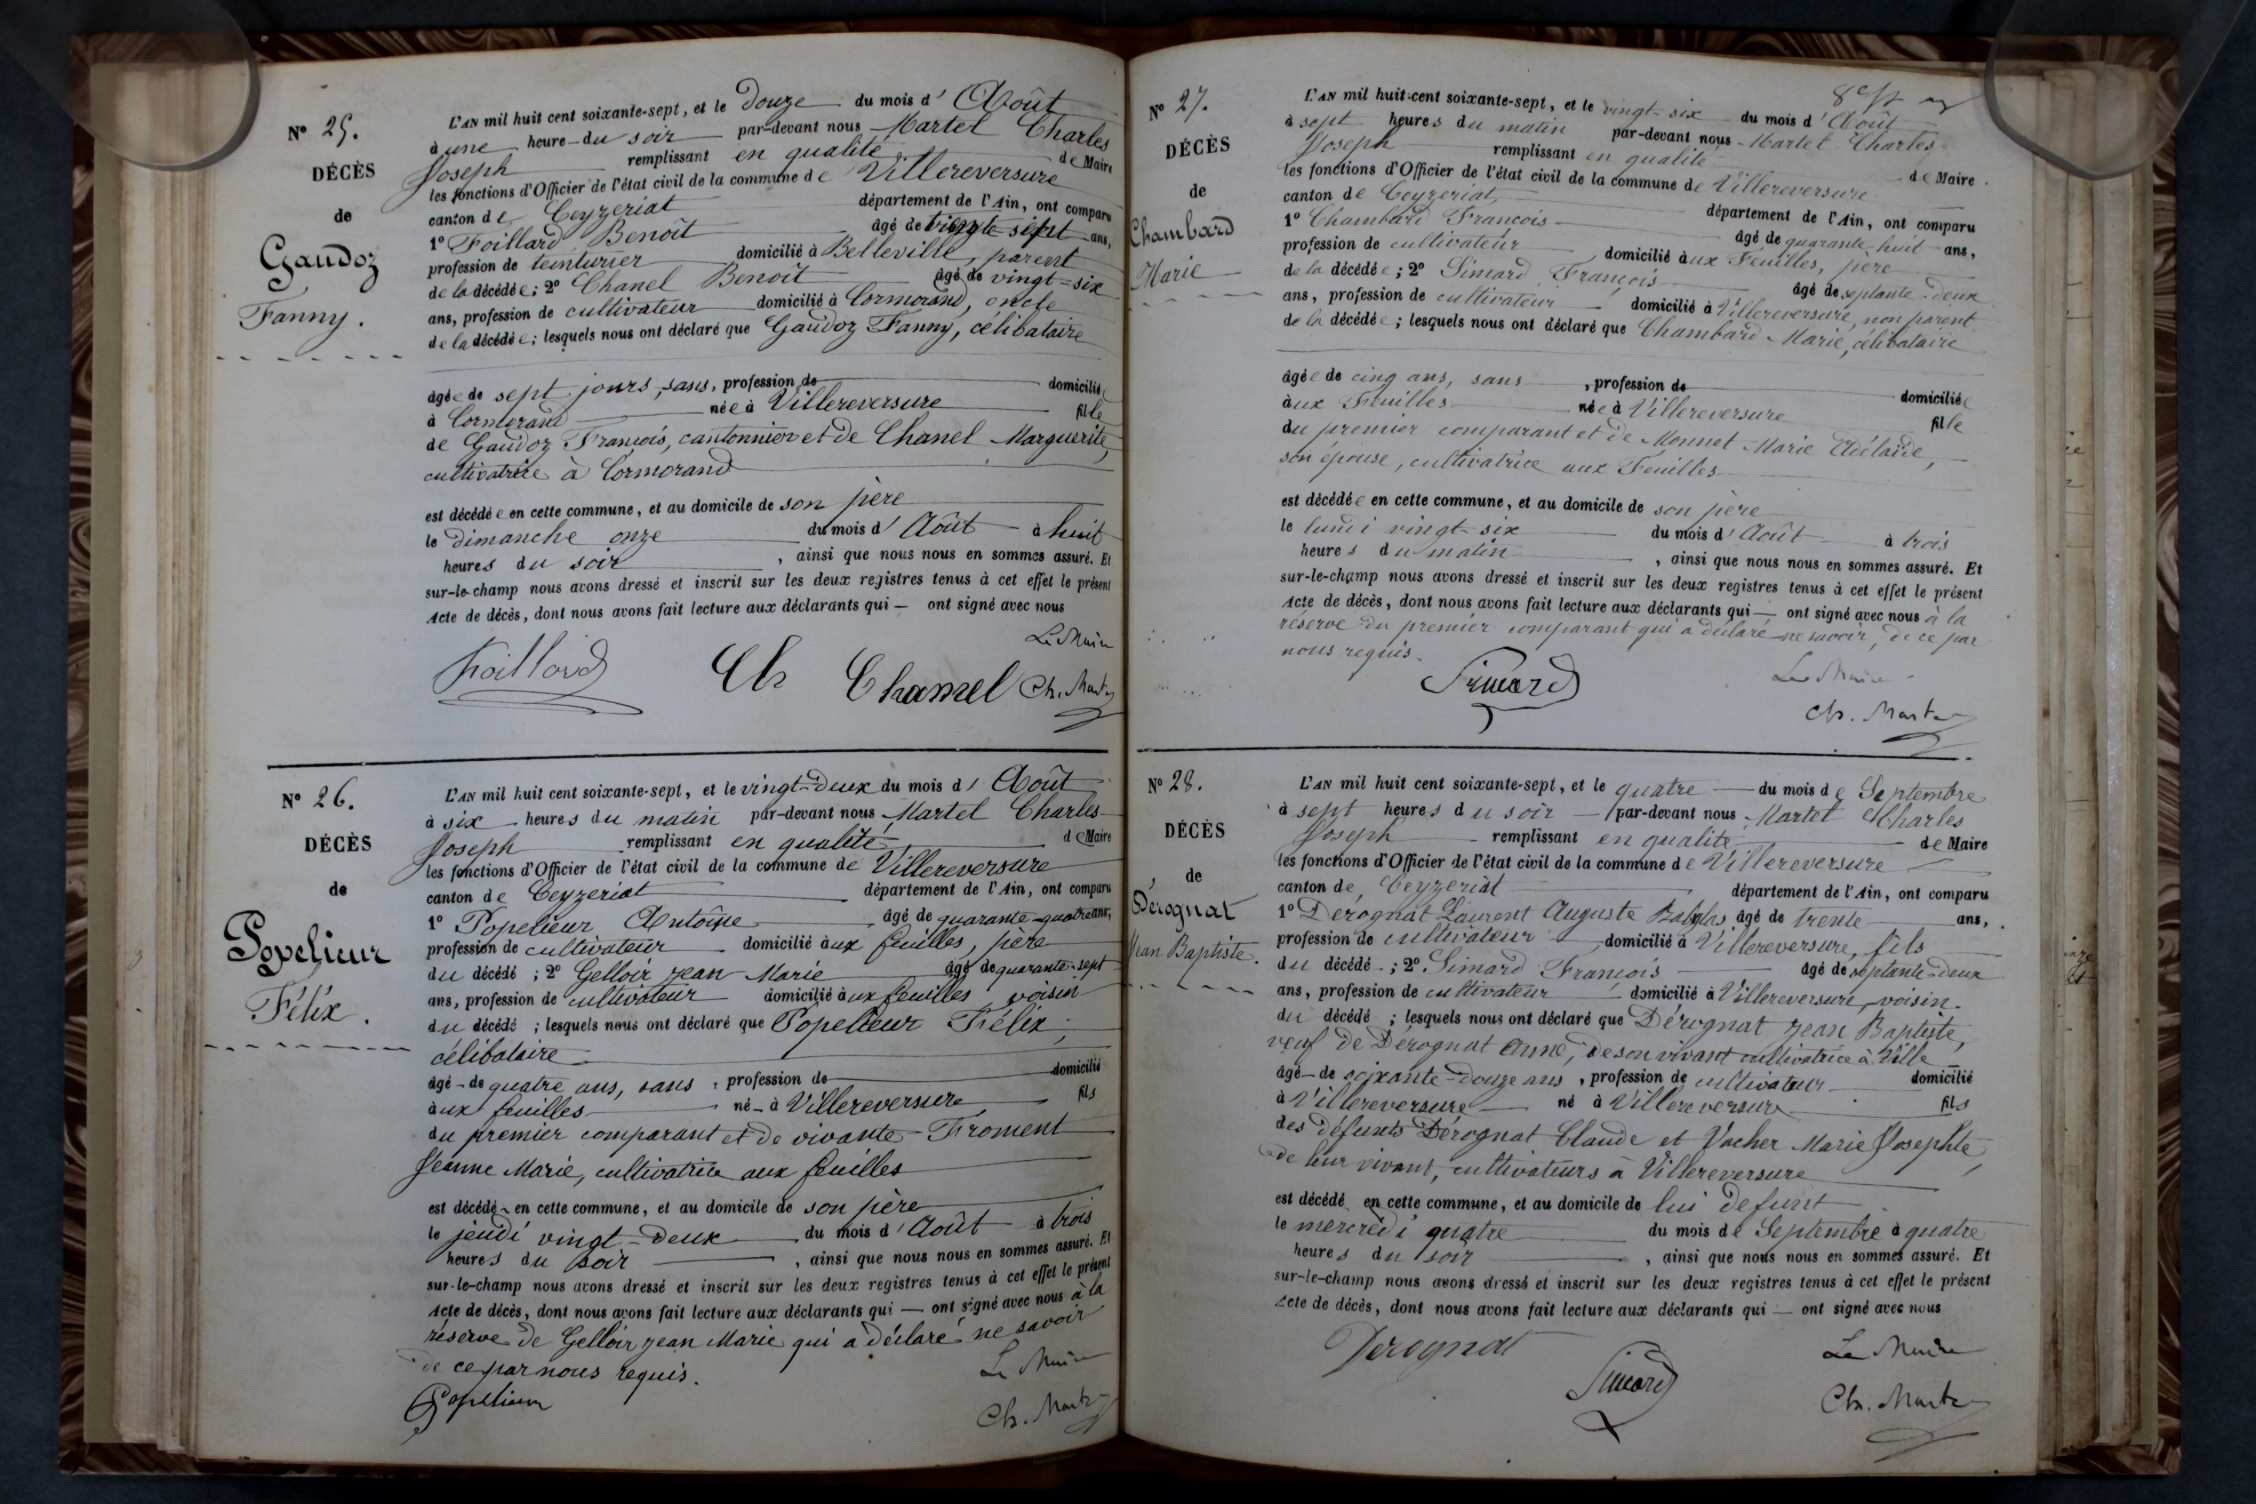 Nº 25.
DÉCÈS
de
Gaudoz
Fanny.
L'AN mil huit cent soixante-sept, et le Douze du mois d' Août
à une heure du soir par-devant nous Martel Charles
Joseph remplissant en qualité de Maire
les fonctions d'Officier de l'état civil de la commune de Villereversure
canton de Ceyzeriat département de l'Ain, ont comparu
1º Foillard Benoît âgé de sept ans,
profession de teinturier domicilié à Belleville, parent
de la décédée; 2º Chanel Benoît âgé de vingt-six
ans, profession de cultivateur domicilié à Cormorand, oncle
de la décédée; lesquels nous ont déclaré que Gaudoz Fanny, célibataire
âgée de sept jours, sans, profession de domiciliée
à Cormorand née à Villereversure fille
de Gaudoz François, cantonnier et de Chanel Marguerite,
cultivatrice à Cormorand
est décédée en cette commune, et au domicile de son père
le dimanche onze du mois d' Août à huit
heures du soir, ainsi que nous nous en sommes assuré. Et
sur-le-champ nous avons dressé et inscrit sur les deux registres tenus à cet effet le présent
Acte de décès, dont nous avons fait lecture aux déclarants qui — ont signé avec nous
Le Maire
Foillard Ch Chamel Ch. Martel
Nº 26.
DÉCÈS
de
Popelieur
Félix.
L'AN mil huit cent soixante-sept, et le vingt-deux du mois d' Août
à six heures du matin par-devant nous Martel Charles
Joseph remplissant en qualité de Maire
les fonctions d'Officier de l'état civil de la commune de Villereversure
canton de Ceyzeriat département de l'Ain, ont comparu
1º Popelieur Antoine âgé de quarante-quatre ans,
profession de cultivateur domicilié aux feuilles, père
du décédé; 2º Gelloir Jean Marie âgé de quarante-sept
ans, profession de cultivateur domicilié aux feuilles voisin
du décédé; lesquels nous ont déclaré que Popelieur Félix,
célibataire
âgé de quatre ans, sans, profession de domicilié
aux feuilles né à Villereversure fils
du premier comparant et de vivante Froment
Jeanne Marie, cultivatrice aux feuilles
est décédé en cette commune, et au domicile de son père
le jeudi vingt-deux du mois d' Août à trois
heures du soir, ainsi que nous nous en sommes assuré. Et
sur-le-champ nous avons dressé et inscrit sur les deux registres tenus à cet effet le présent
Acte de décès, dont nous avons fait lecture aux déclarants qui — ont signé avec nous à la
réserve de Gelloir Jean Marie qui a déclaré ne savoir
de ce par nous requis.
Le Maire
Popelieur
Ch. Martel
Nº 27.
DÉCÈS
de
Chambard
Marie
L'AN mil huit cent soixante-sept, et le vingt-six du mois d' Août
à sept heures du matin par-devant nous Martel Charles
Joseph remplissant en qualité de Maire.
les fonctions d'Officier de l'état civil de la commune de Villereversure
canton de Ceyzeriat département de l'Ain, ont comparu
1º Chambard François âgé de quarante-huit ans,
profession de cultivateur domicilié aux Feuilles, père
de la décédée; 2º Simard François âgé de septante-deux
ans, profession de cultivateur domicilié à Villereversure, non parent
de la décédée; lesquels nous ont déclaré que Chambard Marie, célibataire
âgée de cinq ans, sans, profession de domiciliée
aux Feuilles née à Villereversure fille
du premier comparant et de Monnet Marie Adélaïde,
son épouse, cultivatrice aux Feuilles
est décédée en cette commune, et au domicile de son père
le lundi vingt-six du mois d' Août à trois
heures du matin, ainsi que nous nous en sommes assuré. Et
sur-le-champ nous avons dressé et inscrit sur les deux registres tenus à cet effet le présent
Acte de décès, dont nous avons fait lecture aux déclarants qui — ont signé avec nous à la
réserve du premier comparant qui a déclaré ne savoir, de ce par
nous requis.
Simard
Le Maire
Ch. Martel
Nº 28.
DÉCÈS
de
Dérognat
Jean Baptiste.
L'AN mil huit cent soixante-sept, et le quatre du mois de Septembre
à sept heures du soir par-devant nous Martel Charles
Joseph remplissant en qualité de Maire
les fonctions d'Officier de l'état civil de la commune de Villereversure
canton de Ceyzeriat département de l'Ain, ont comparu
1º Dérognat Laurent Auguste âgé de trente ans,
profession de cultivateur domicilié à Villereversure, fils
du décédé; 2º Simard François âgé de septante-deux
ans, profession de cultivateur domicilié à Villereversure, voisin
du décédé; lesquels nous ont déclaré que Dérognat Jean Baptiste,
veuf de Dérognat Anne, de son vivant cultivatrice à Ville
âgé de soixante-douze ans, profession de cultivateur domicilié
à Villereversure né à Villereversure fils
des défunts Dérognat Claude et Vacher Marie Josephte,
de leur vivant, cultivateurs à Villereversure
est décédé en cette commune, et au domicile de lui défunt
le mercredi quatre du mois de Septembre à quatre
heures du soir, ainsi que nous nous en sommes assuré. Et
sur-le-champ nous avons dressé et inscrit sur les deux registres tenus à cet effet le présent
Acte de décès, dont nous avons fait lecture aux déclarants qui — ont signé avec nous
Derognat
Simard
Le Maire
Ch. Martel